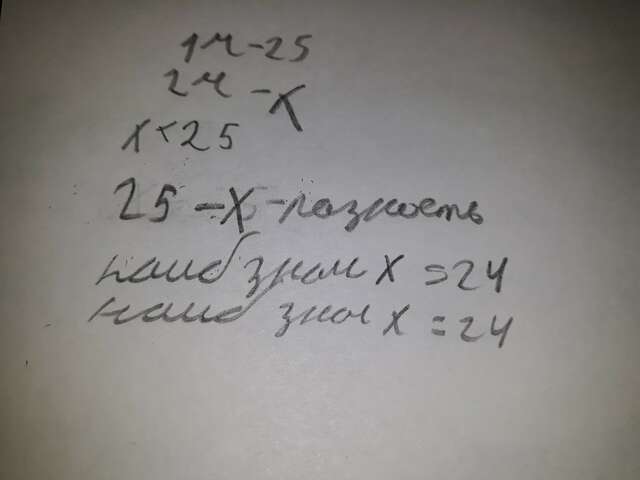 1ч-25
2ч-x
x<25
25-x-разность
наиб знач x=24
наиб знач x=24